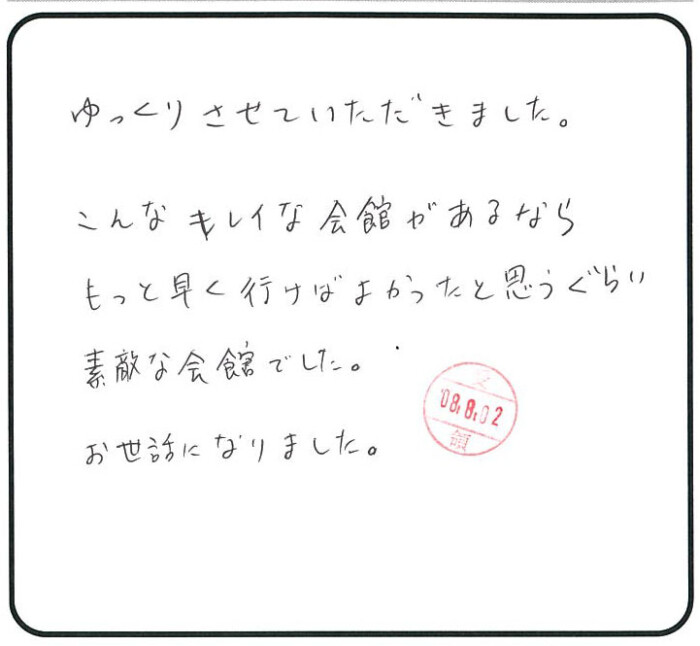 ゆっくりさせていただきました。
こんなキレイな会館があるなら
もっと早く行けばよかったと思うぐらい
素敵な会館でした。
お世話になりました。
受
'08.8.02
領